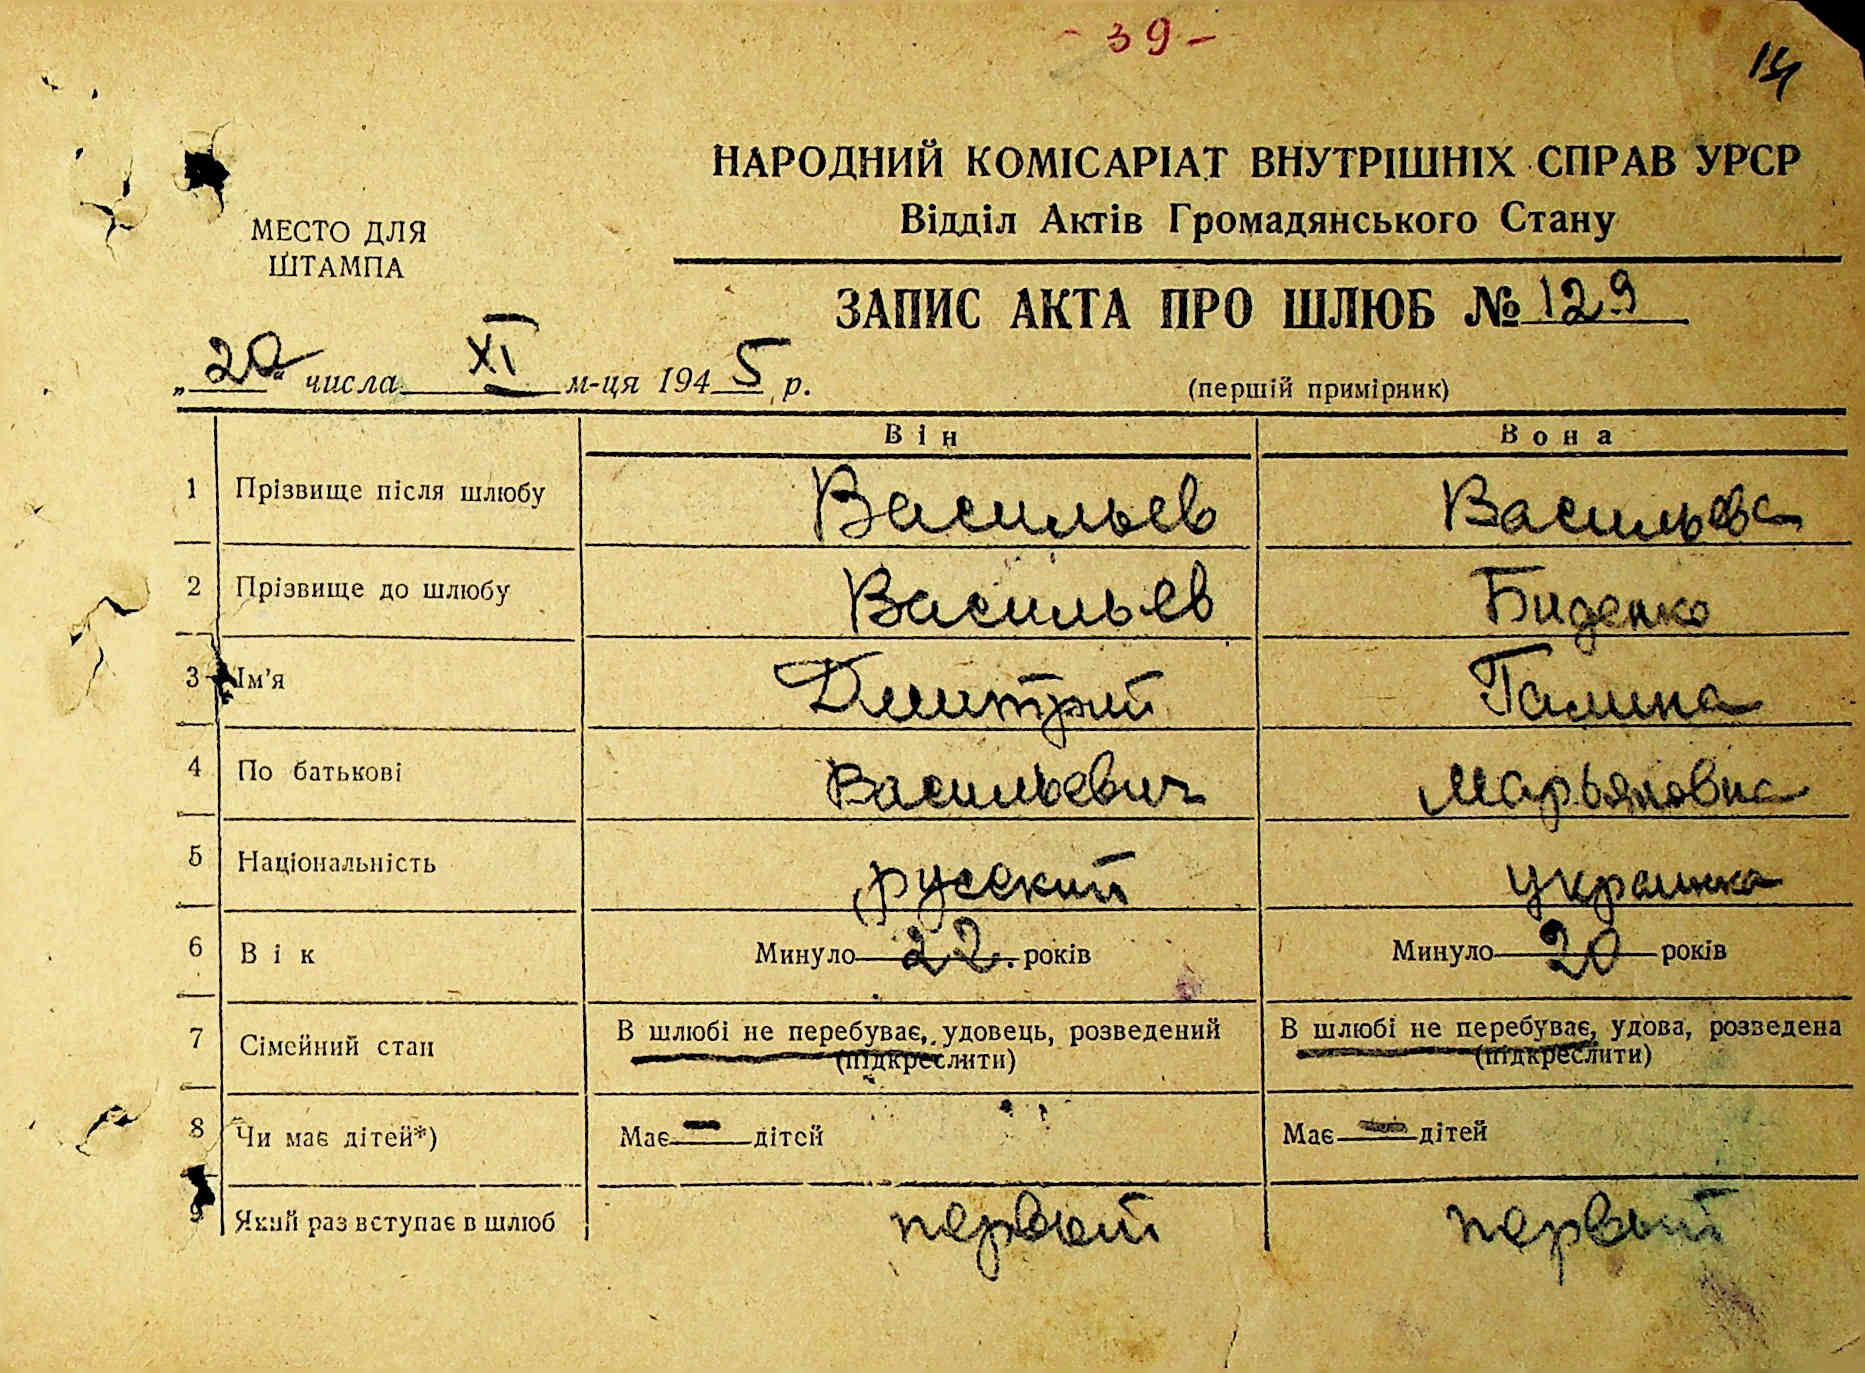 - 39 -
14
НАРОДНИЙ КОМІСАРІАТ ВНУТРІШНІХ СПРАВ УРСР
Відділ Актів Громадянського Стану
МЕСТО ДЛЯ
ШТАМПА
ЗАПИС АКТА ПРО ШЛЮБ № 129
„20“ числа XI м-ця 1945 р.
(першій примірник)
Він Вона
1 Прізвище після шлюбу Васильев Васильева
2 Прізвище до шлюбу Васильев Биденко
3 Ім'я Дмитрий Галина
4 По батькові Васильевич Марьяновна
5 Національність русский украинка
6 Вік Минуло 22. років Минуло 20 років
7 Сімейний стан В шлюбі не перебуває, удовець, розведений В шлюбі не перебуває, удова, розведена
(підкреслити) (підкреслити)
8 Чи має дітей*) Має — дітей Має — дітей
9 Який раз вступає в шлюб первый первый